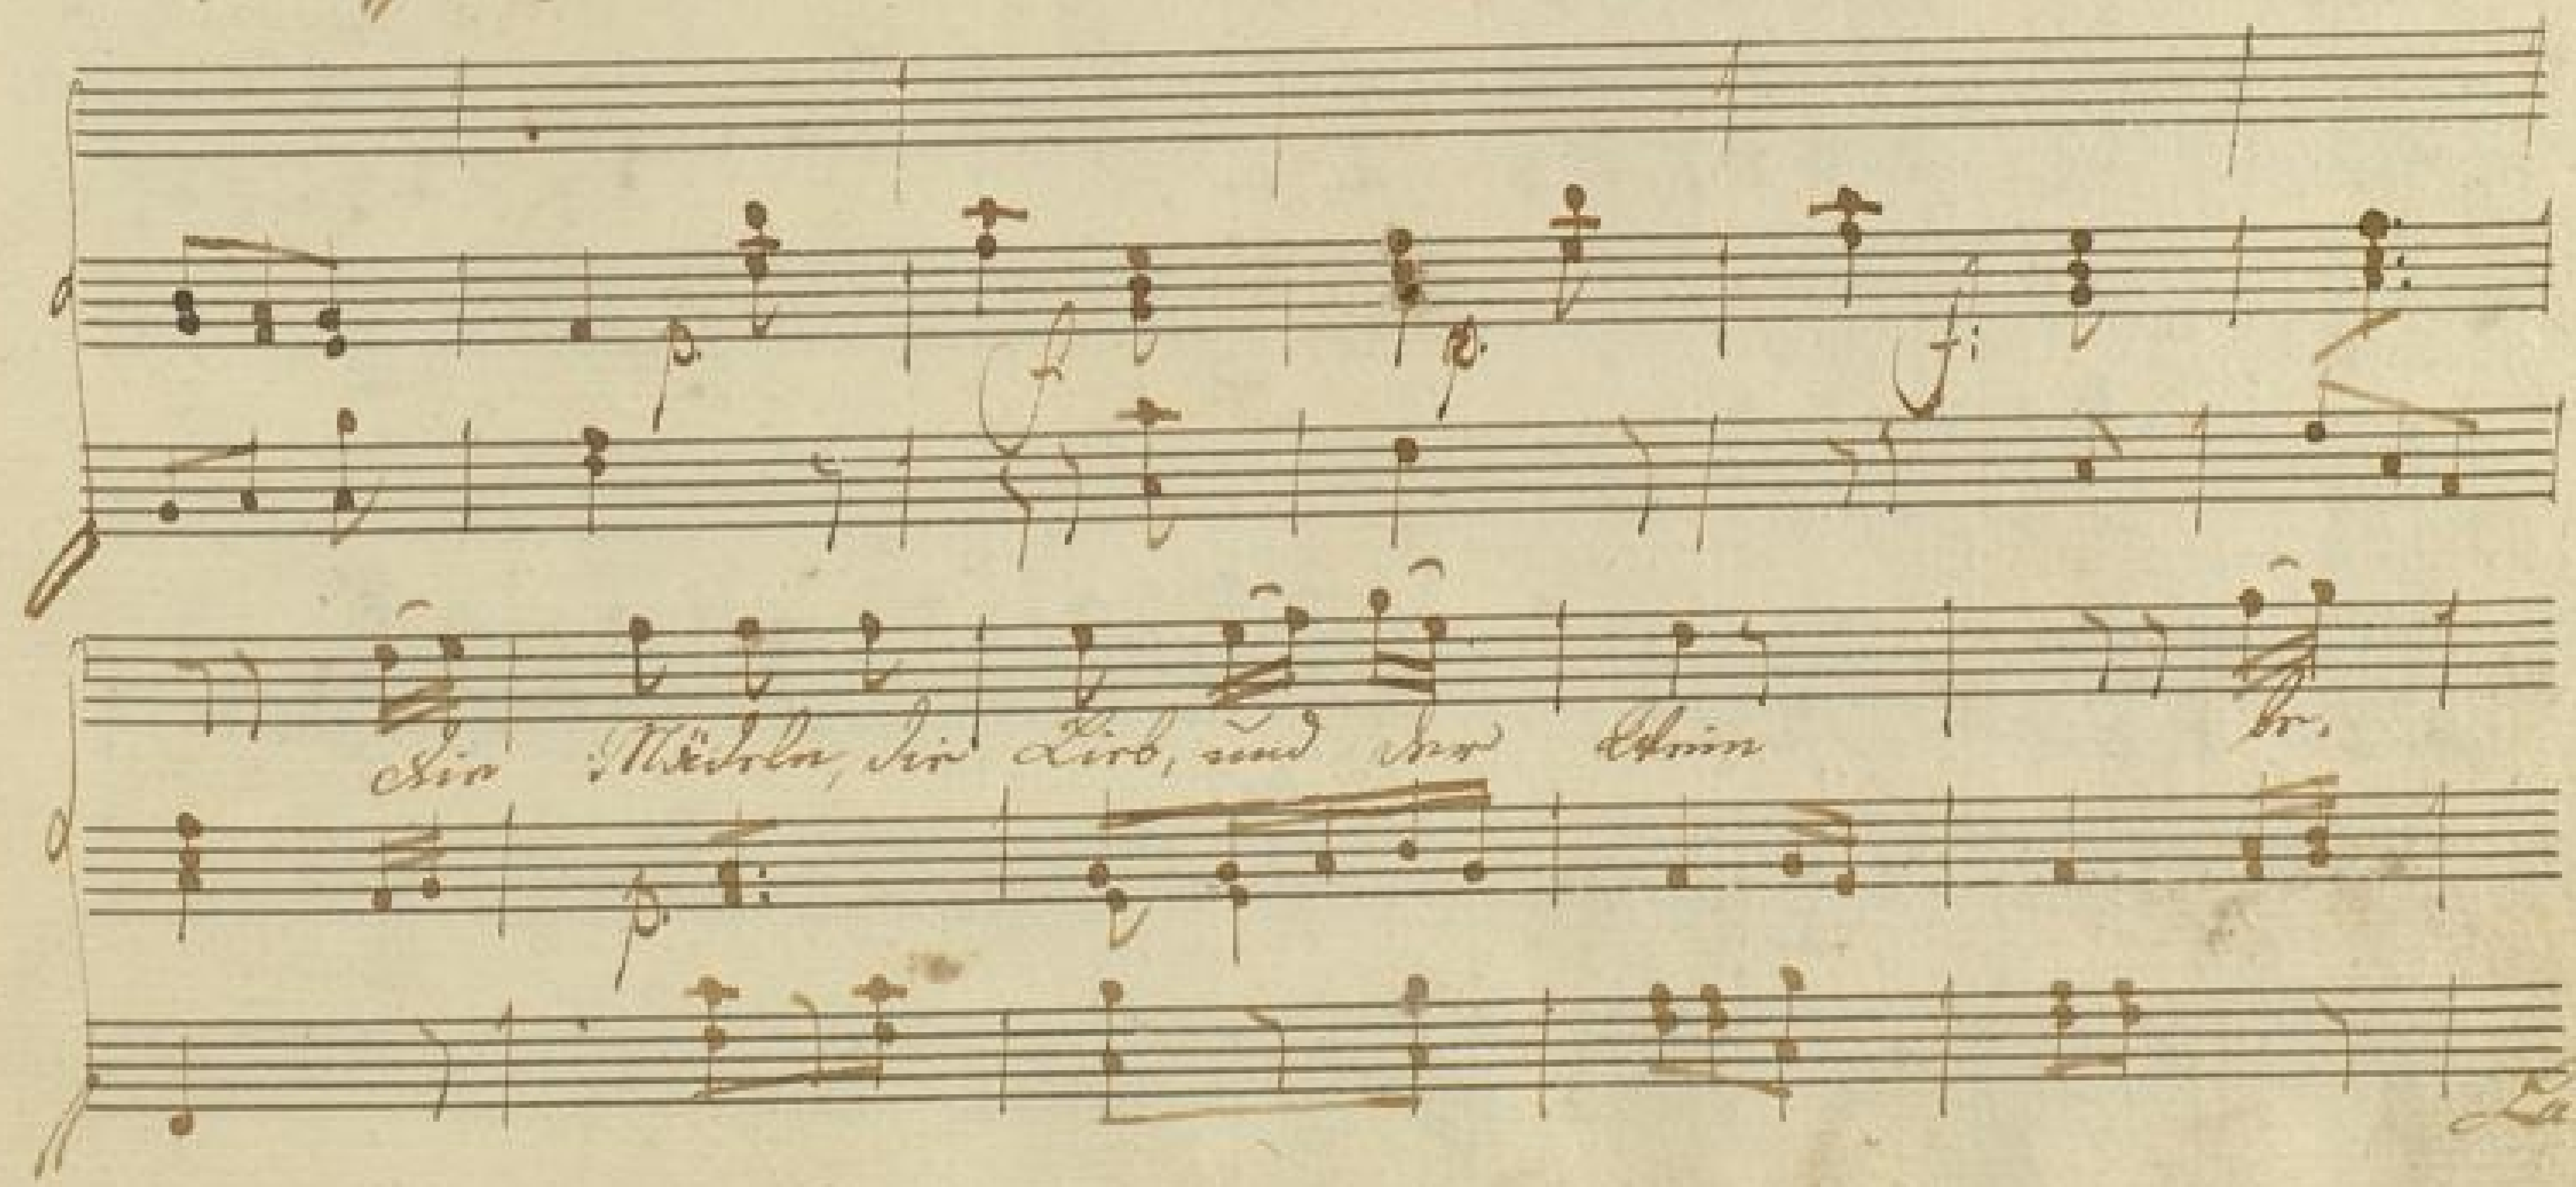 p. f p. f:
Die Mädeln, die Lieb, und der Wein be,
p.
La